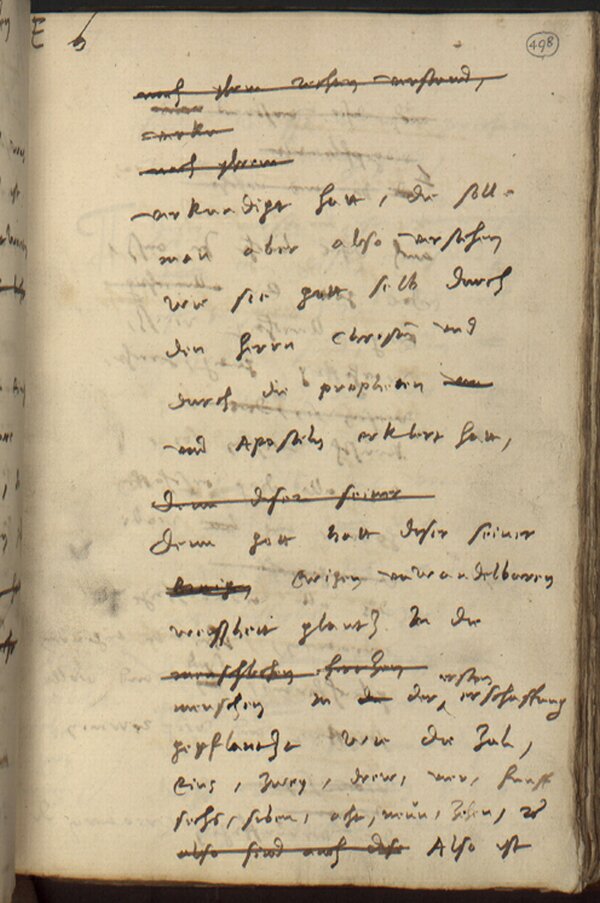 E 6
498
nach ihrem verstand,
nach ihrem
verkundigt hatt, die soll
man aber also verstehen
wie sie gott selb durch
den herrn Christum und
durch die propheten
und Aposteln erklert hatt,
denn diser seiner
denn gott hatt diser seiner
Ewigen unwandelbaren
weyßheit glantz In die
menschlichen hertzen
menschen in der ersten erschaffung
gepflantzt wie die Zal,
Eins, Zwey, drey, vier, funff
sechs, siben, acht, neün, Zehen, 
also sind auch dise Also ist